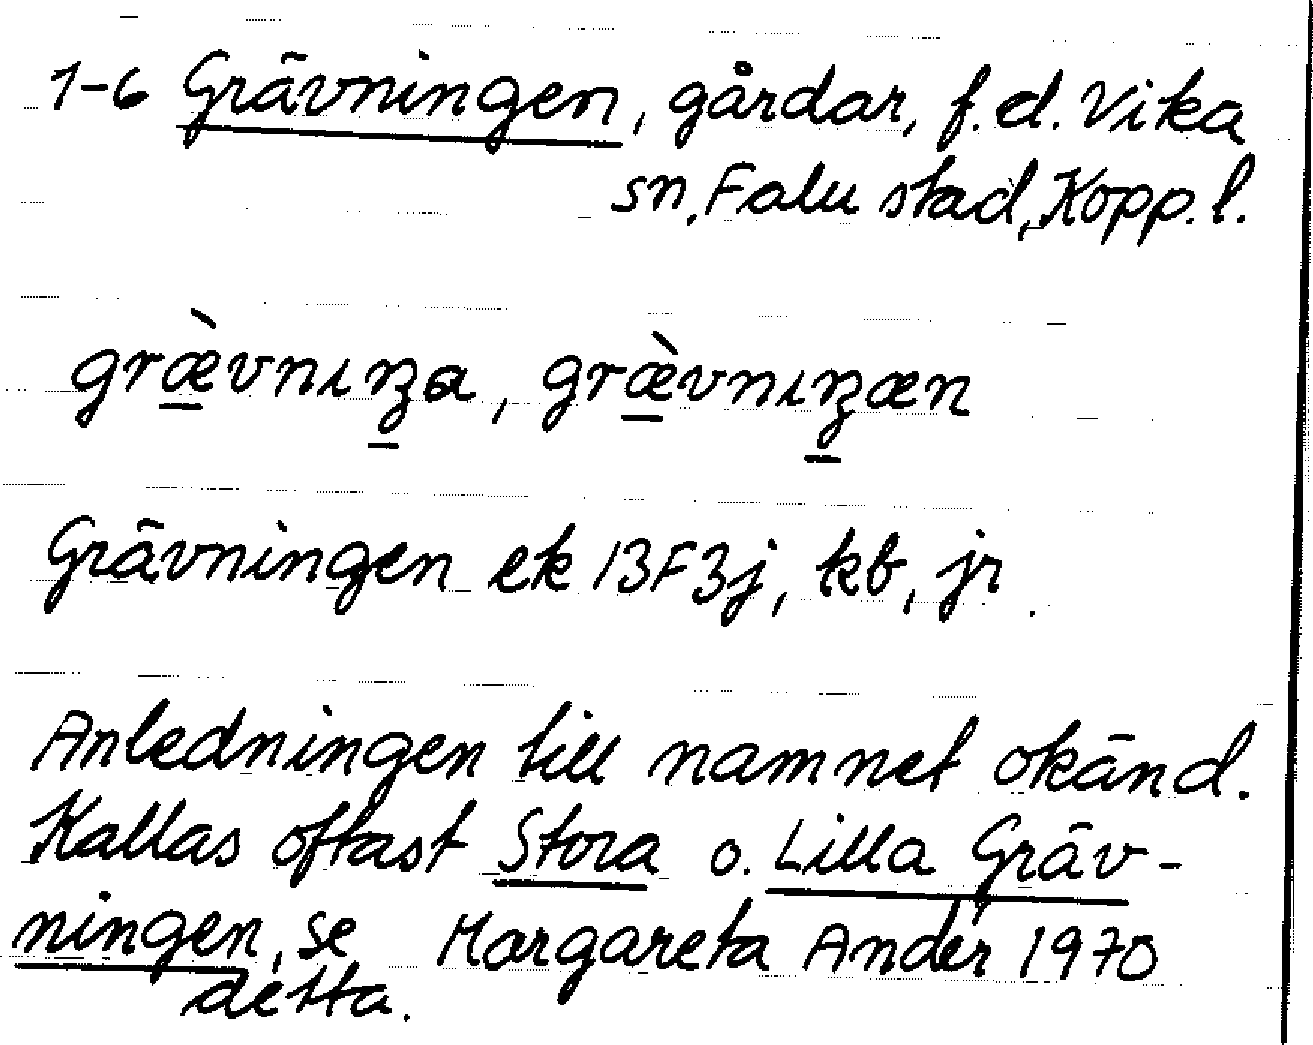 1-6 Grävningen, gårdar, f.d. Vika
sn, Falu stad, Kopp. l.
græ̀vnıŋa, græ̀vnıŋæn
Grävningen ek 13F3j, kb, jr.
Anledningen till namnet okänd.
Kallas oftast Stora o. Lilla Gräv-
ningen, se Margareta Andér 1970
detta.